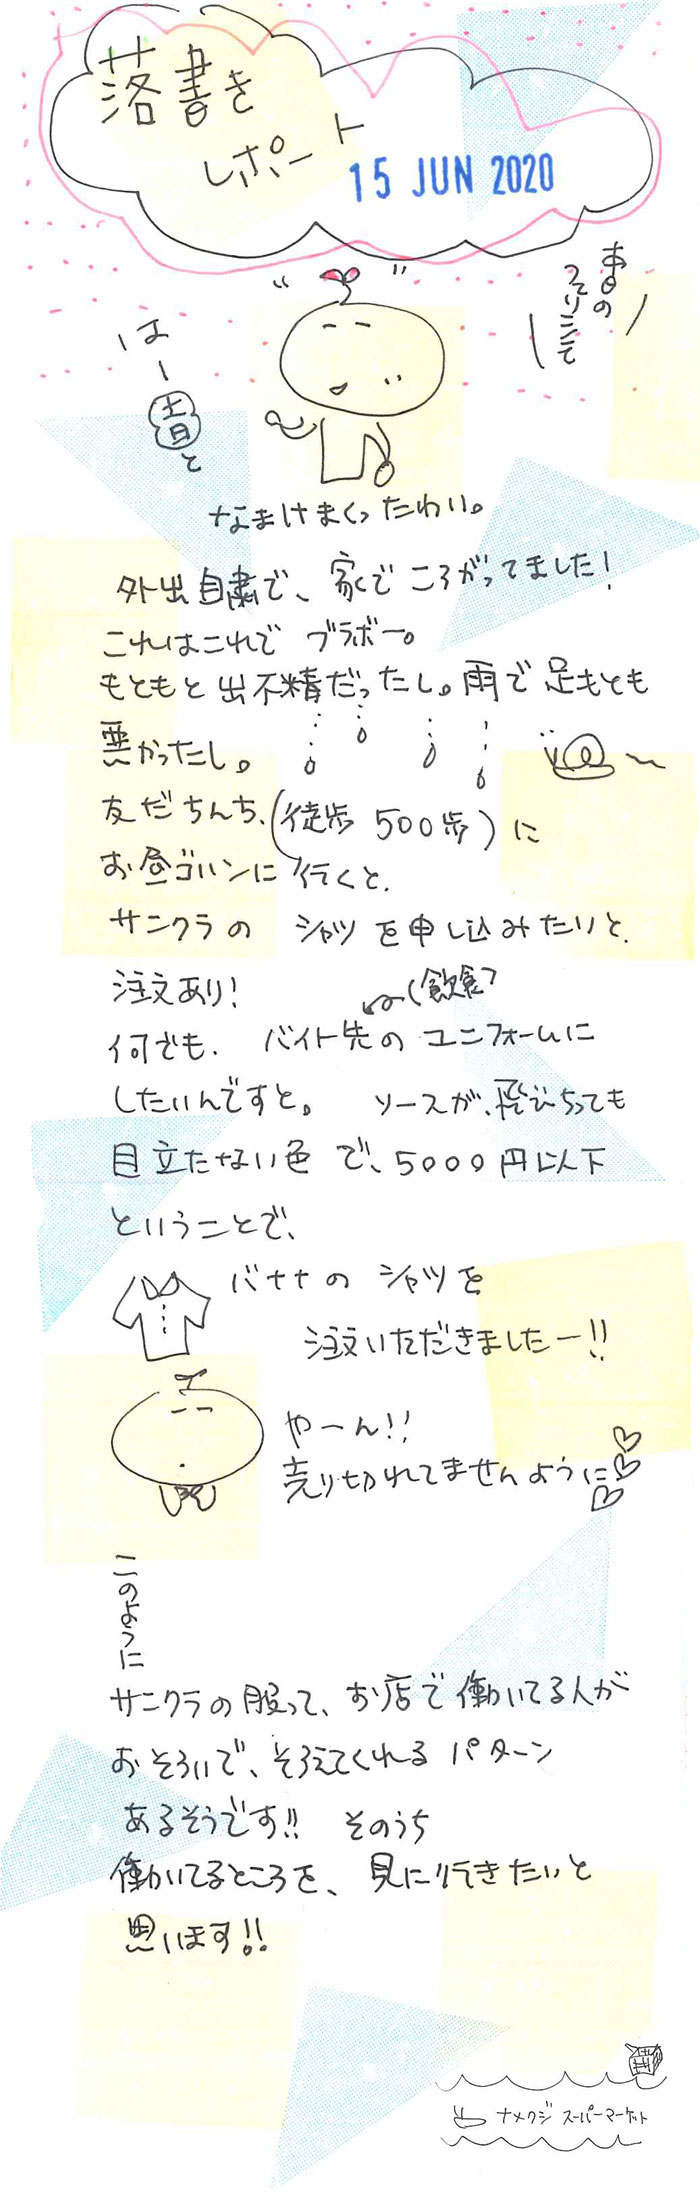 落書き
レポート
15 JUN 2020
本日の
はー
土日と
なまけまくったわい。
外出自粛で、家で ころがってました!
これはこれで ブラボー。
もともと出不精だったし。雨で足もとも
悪かったし。
友だちんち、(徒歩 500歩)に
お昼ゴハンに 行くと、
サンクラの シャツを申し込みたいと、
注文あり!
(飲食)
何でも、バイト先の ユニフォームに
したいんですと。 ソースが、飛びちっても
目立たない色 で、5000円以下
ということで、
バナナの シャツを
注文いただきましたー!!
やーん!!
売り切れてませんように
このように
サンクラの服って、お店で働いてる人が
おそろいで、そろえてくれる パターン
あるそうです!! そのうち
働いてるところを、見に行きたいと
思います!!
ナメクジ スーパーマーケット